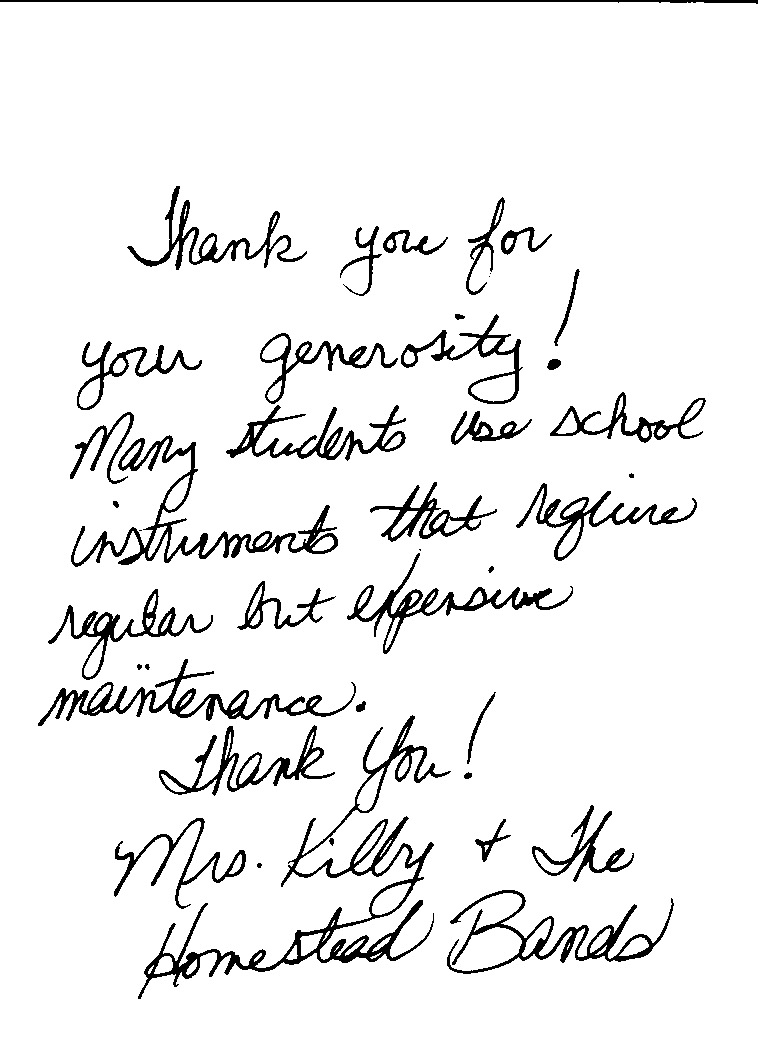 Thank you for
your generosity!
Many students use school
instruments that require
regular but expensive
maintenance.
Thank You!
Mrs. Kilby + The
Homestead Bands